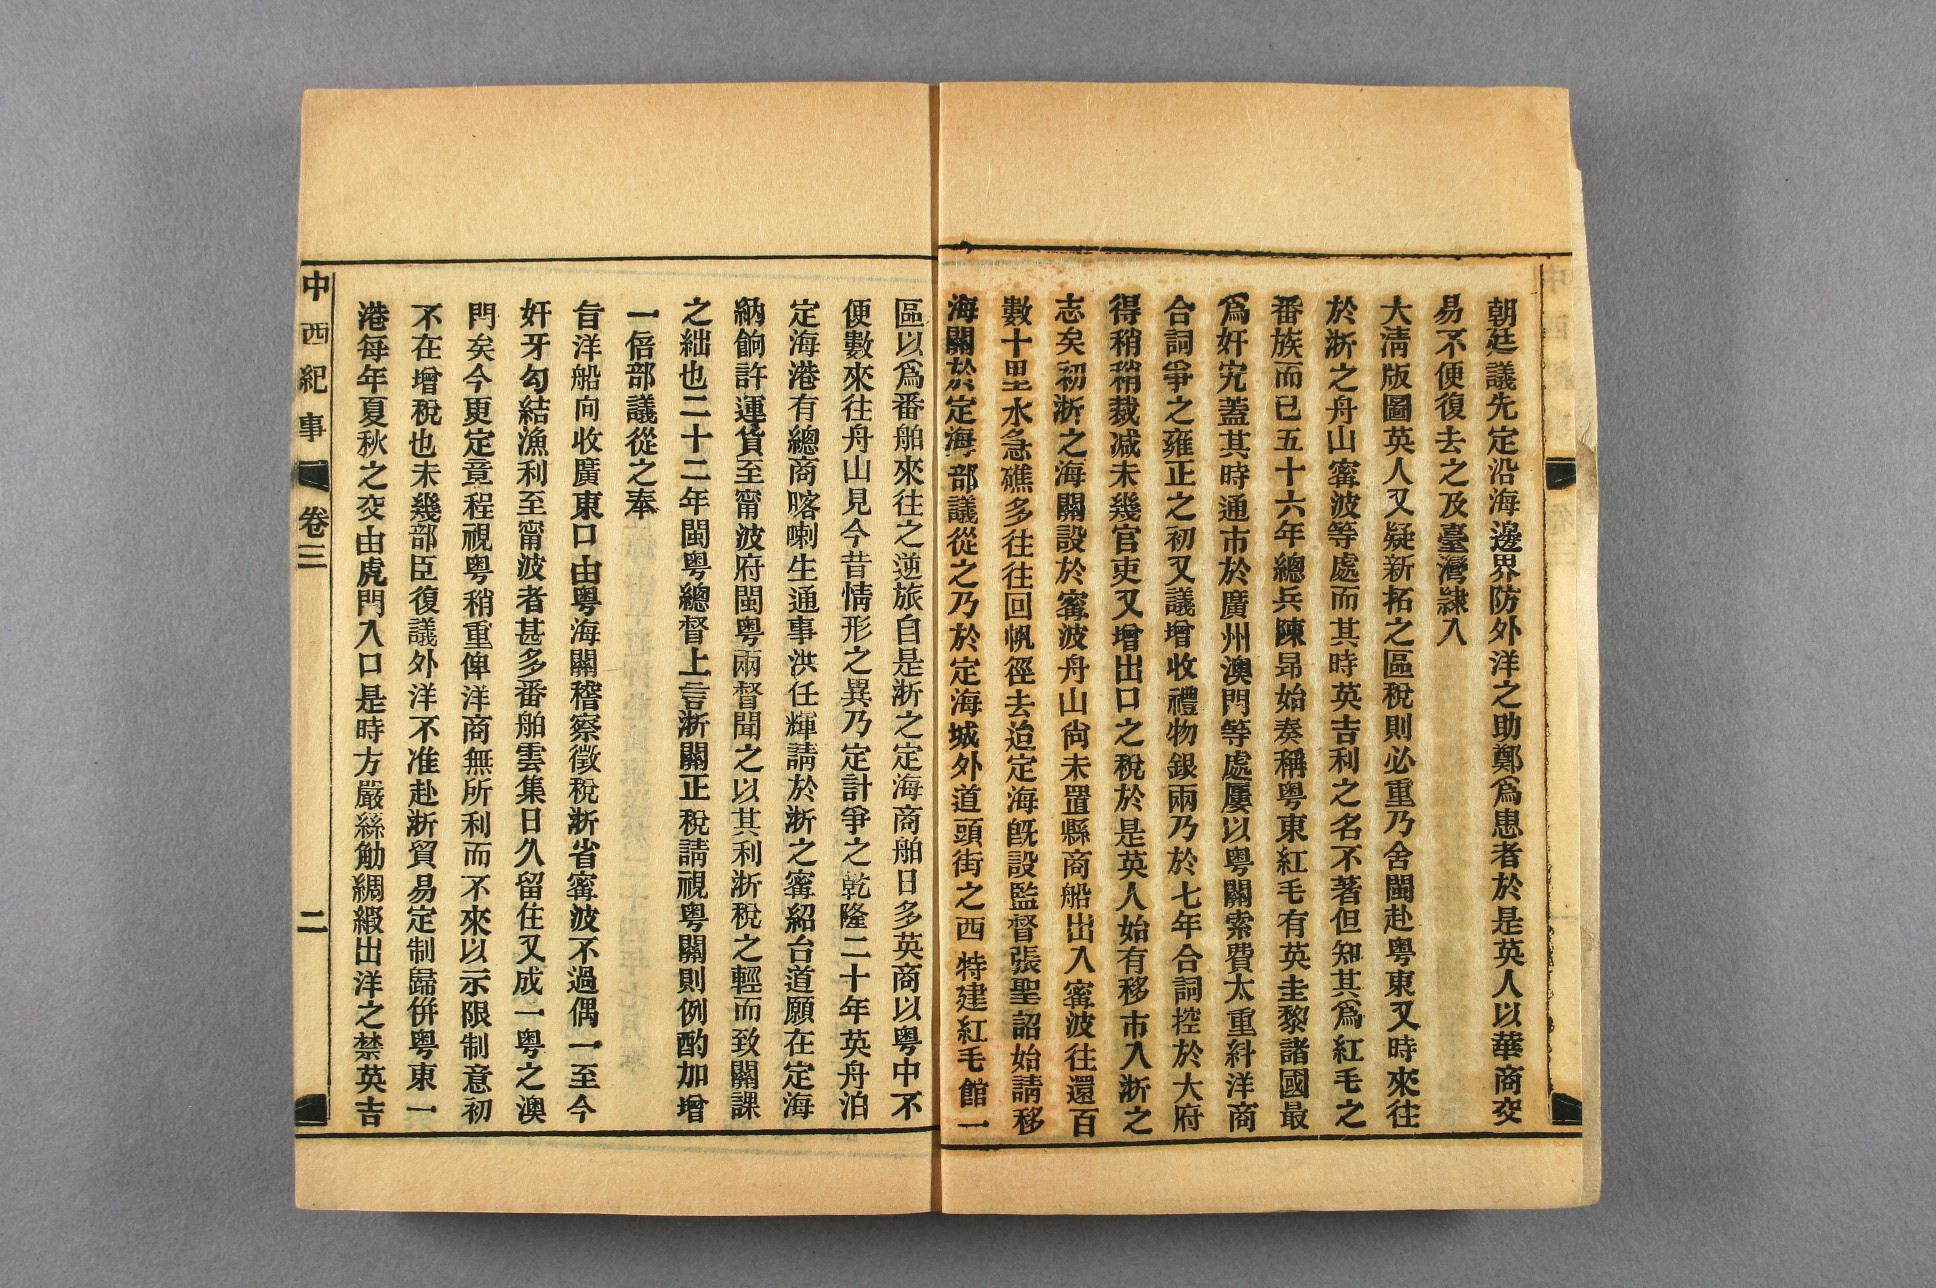 朝廷議先定沿海邊界防外洋之助鄭爲患者於是英人以華商交
易不便復去之及臺灣隸入
大淸版圖英人又疑新拓之區稅則必重乃舍閩赴粤東又時來往
於浙之舟山寗波等處而其時英吉利之名不著但知其爲紅毛之
番族而已五十六年總兵陳昻始奏稱粤東紅毛有英圭黎諸國最
爲奸宄蓋其時通市於廣州澳門等處屢以粤關索費太重糾洋商
合詞爭之雍正之初又議增收禮物銀兩乃於七年合詞控於大府
得稍稍裁減未幾官吏又增出口之稅於是英人始有移市入浙之
志矣初浙之海關設於寗波舟山尙未置縣商船出入寗波往還百
數十里水急礁多往往回帆徑去迨定海旣設監督張聖詔始請移
海關於定海部議從之乃於定海城外道頭街之西特建紅毛館一
區以爲番舶來往之逆旅自是浙之定海商舶日多英商以粤中不
便數來往舟山見今昔情形之異乃定計爭之乾隆二十年英舟泊
定海港有總商喀喇生通事洪任輝請於浙之寗紹台道願在定海
納餉許運貨至甯波府閩粤兩督聞之以其利浙稅之輕而致關課
之絀也二十二年閩粤總督上言浙關正稅請視粤關則例酌加增
一倍部議從之奉
旨洋船向收廣東口由粤海關稽察徵稅浙省寗波不過偶一至今
奸牙勾結漁利至甯波者甚多番舶雲集日久留住又成一粤之澳
門矣今更定章程視粤稍重俾洋商無所利而不來以示限制意初
不在增稅也未幾部臣復議外洋不准赴浙貿易定制歸併粤東一
港每年夏秋之交由虎門入口是時方嚴絲觔綢緞出洋之禁英吉
中西紀事
卷三
二